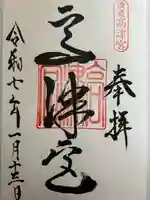 浪速高津宮
奉拝
高津宮
令和七年一月十三日